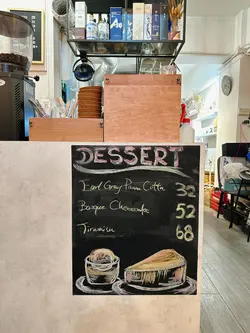 DESSERT
Earl Grey Panna Cotta 32
Basque Cheesecake 52
Tiramisu 68